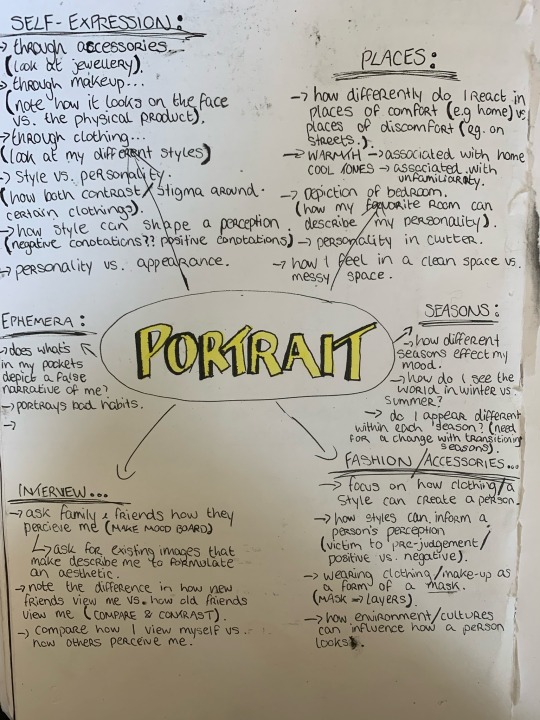 SELF-EXPRESSION:
→ through accessories...
(look at jewellery).
→ through makeup...
(note how it looks on the face
vs. the physical product).
→ through clothing...
(look at my different styles)
→ Style vs. personality.
(how both contrast/stigma around
certain clothings).
→ how style can shape a perception.
(negative conotations?? positive conotations)
→ personality vs. appearance.
PLACES:
→ how differently do I react in
places of comfort (e.g home) vs
places of discomfort (eg. on
streets.).
→ WARMTH → associated with home
COOL TONES → associated with
unfamiliarity.
→ Depiction of bedroom.
(how my favourite room can
describe my personality).
→ personality in clutter.
→ how I feel in a clean space vs.
messy space.
PORTRAIT
EPHEMERA:
→ does what's
in my pockets
depict a false
narrative of me?
→ portrays bad habits.
→
SEASONS:
→ how different
seasons effect my
mood.
→ how do I see the
world in winter vs.
summer?
→ do I appear different
within each season? (need
for a change with transitioning
seasons).
INTERVIEW...
→ ask family & friends how they
percieve me (MAKE MOOD BOARD)
↳ ask for existing images that
make describe me to formulate
an aesthetic.
→ note the difference in how new
friends view me vs. how old friends
view me (COMPARE & CONTRAST).
→ compare how I view myself vs.
how others perceive me.
FASHION/ACCESSORIES...
→ focus on how clothing/a
style can create a person.
→ how styles can inform a
person's perception
(victim to pre-judgement/
positive vs. negative).
→ wearing clothing/make-up as
a form of a mask.
(MASK → layers).
→ how environment/cultures
can influence how a person
looks.